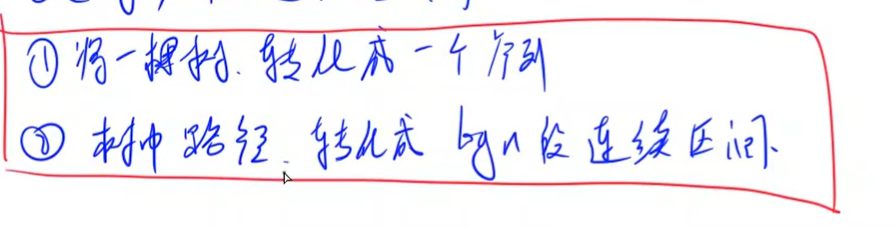 ① 将一棵树.转化成一个序列
② 树中路径.转化成 logn 段连续区间.